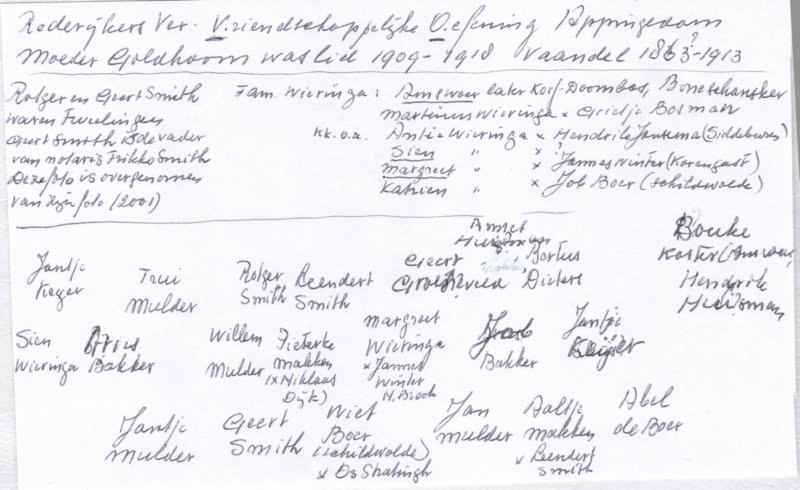 Rederijkers Ver. Vriendschappelijke Oefening Appingedam
Moeder Goldhoorn was lid 1909-1918 Vaandel 1863?-1913
Rotger en Geert Smith
waren Tweelingen
Geert Smith is de vader
van notaris Frikko Smith
Deze foto is overgenomen
van zijn foto (2001)
Fam. Wieringa: later Korf-Doornbos,
Martinus Wieringa x Grietje Bosman
kk. o.a. Antie Wieringa x Hendrik Jansema (Siddeburen)
Sien " ,
Margreet " x Jannes Winter (Korengast)
Katrien " x Job Boer (Schildwolde)
Jantje Keyer
Trui Mulder
Rotger Smith
Leendert Smith
Annet
Geert
Bertus Dieters
Bouke
Koster
Hendrik Huisman
Sien Wieringa
Arius Bakker
Willem Mulder
Pieterke Makken (x Niklaas Dijk)
Margreet Wieringa x Jannes Winter N.Broek
Bakker
Jantje
Jantje Mulder
Geert Smith
Wiet Boer (Schildwolde) x Ds Stratingh
Jan Mulder
Aaltje Makken x Leendert Smith
Abel de Boer